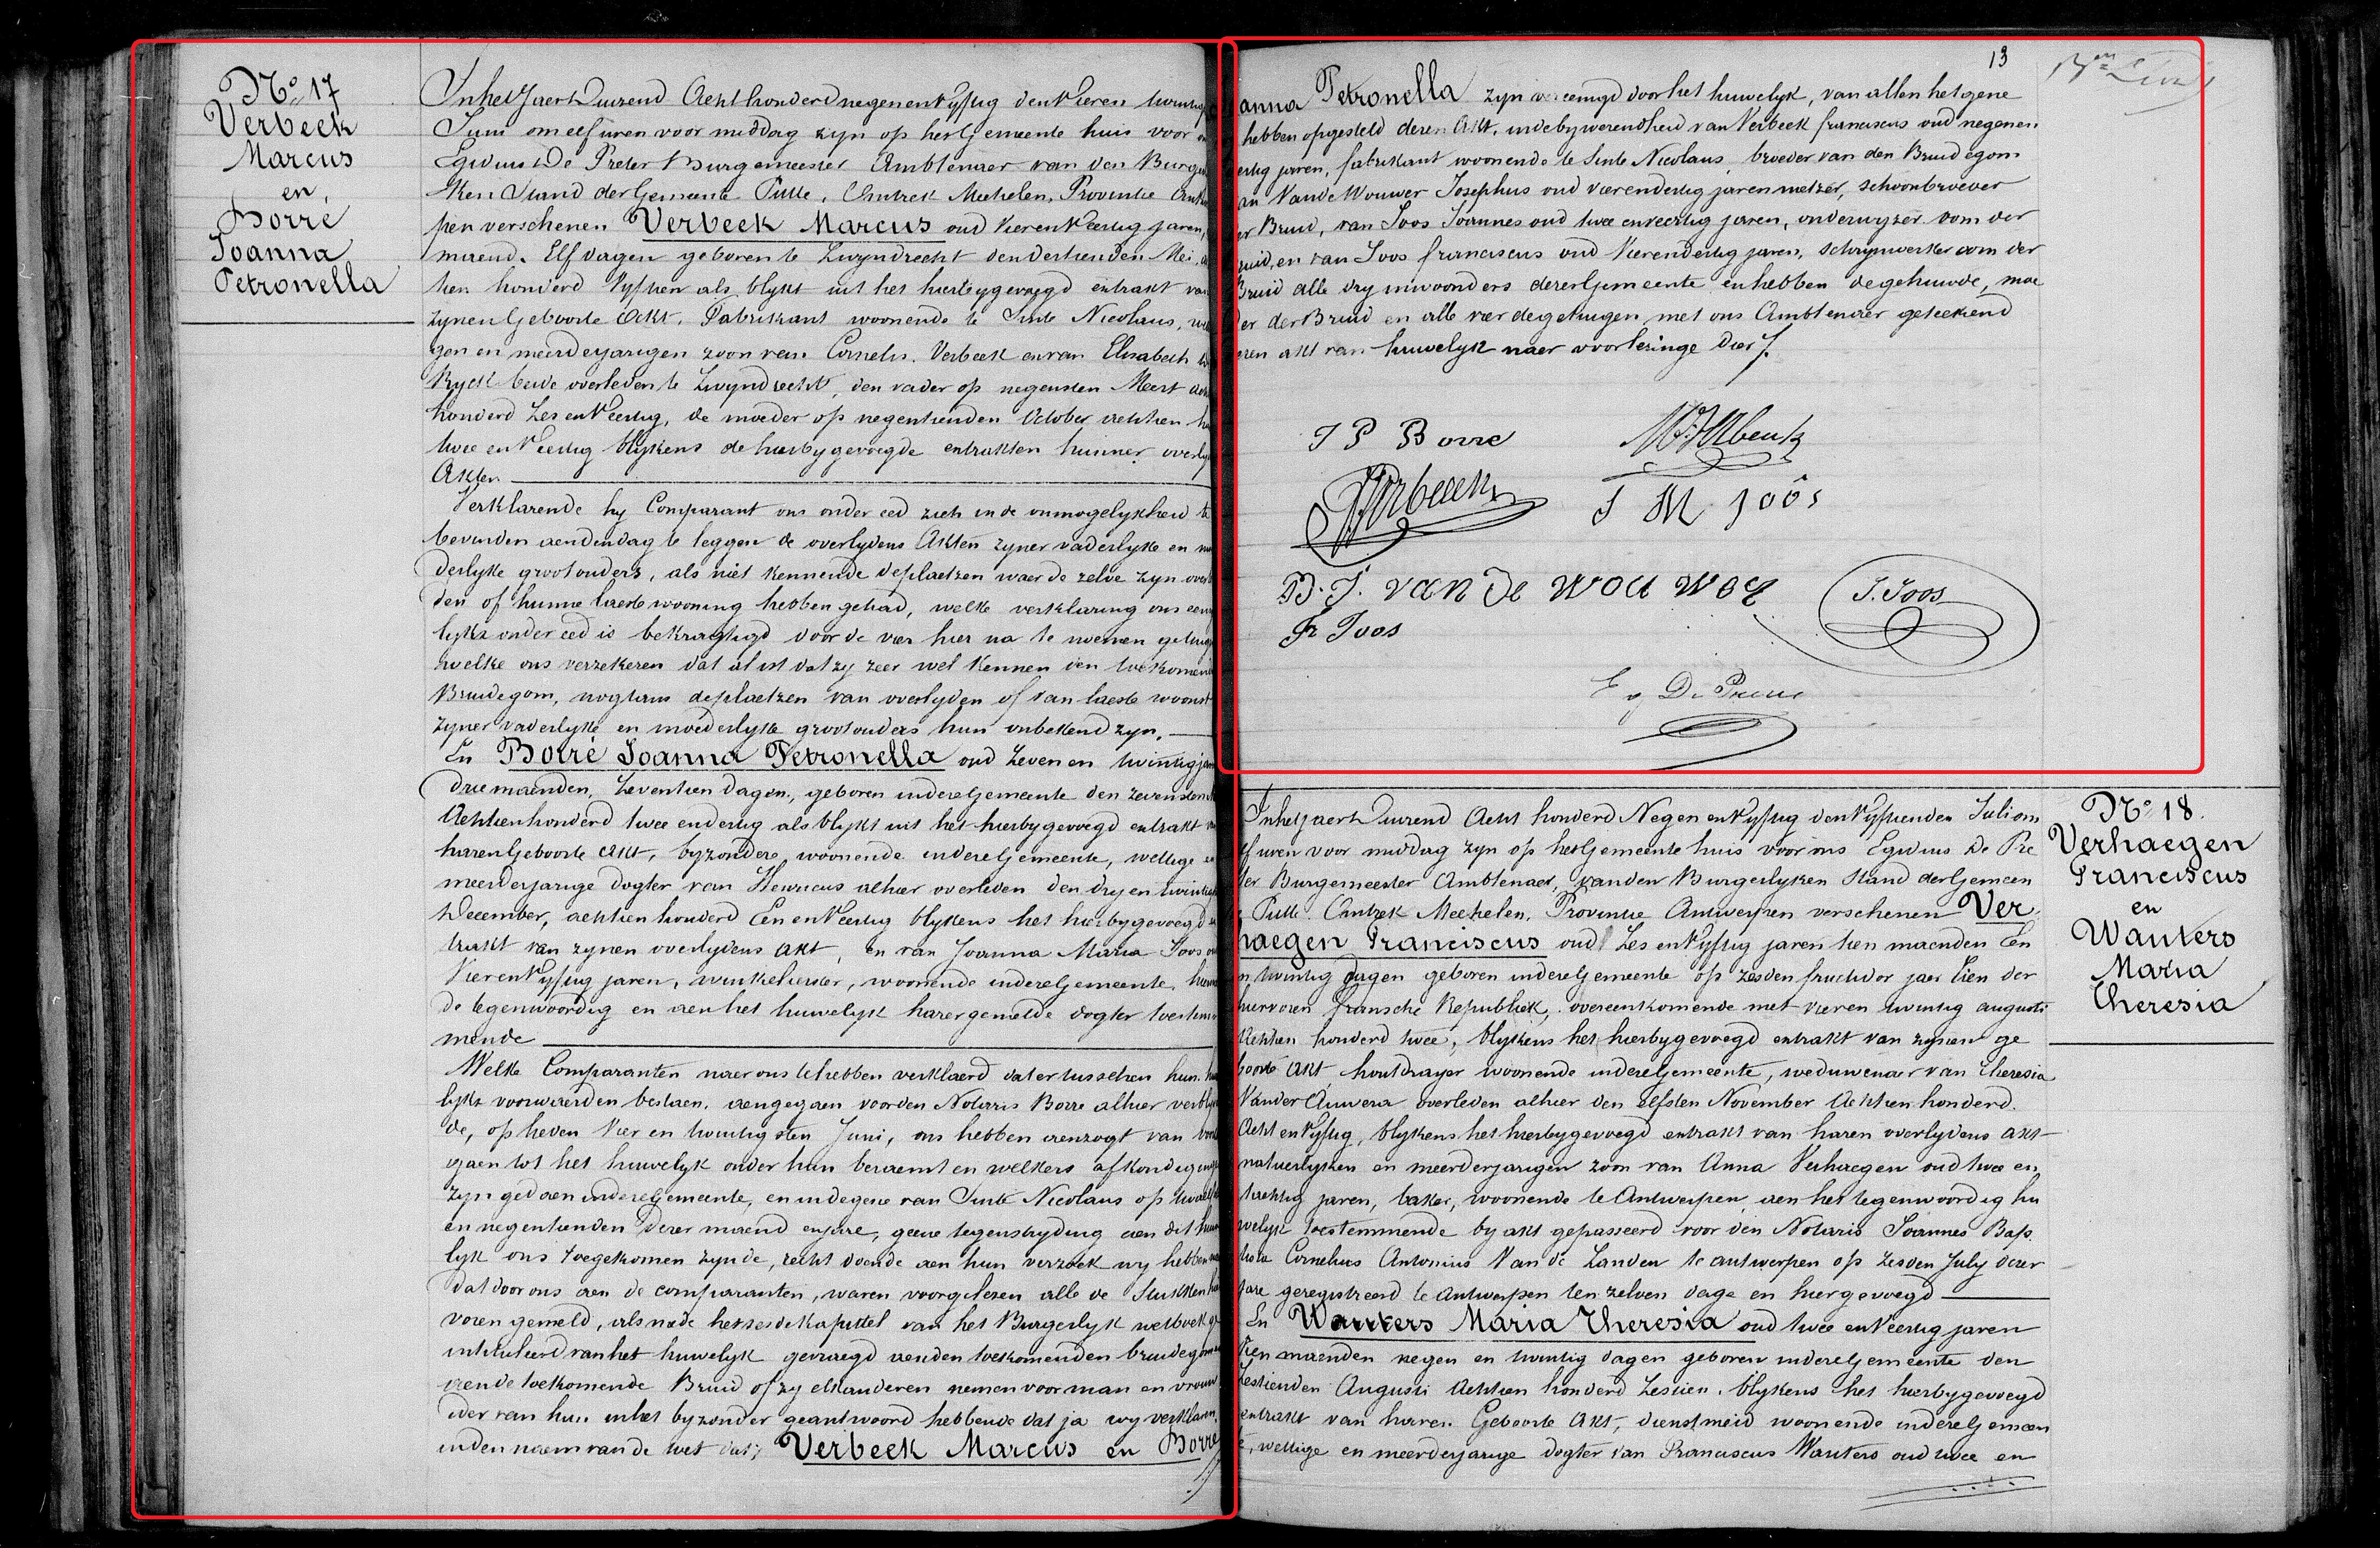 Nº 17
Verbeek
Marcus
en
Borré
Joanna
Petronella
In het Jaer Duizend Acht honderd negen en Vyftig den Vier en twintig
Juni om elf uren voor middag zyn op het Gemeente huis voor
Egidius De Preter Burgemeester Ambtenaer van den Burger
lken Stand der Gemeente Putte, Cantrek Mechelen, Provintie
pen verschenen Verbeek Marcus oud Vier en Veertig jaren,
maend, Elf dagen geboren te Zwyndrecht den dertienden Mei
tien honderd Vyftien als blykt uit het hierbygevoegd extrakt van
zynen Geboorte Akt, Fabrikant woonende te Sinte Nicolaus,
gen en meerderjarigen zoon van Cornelis Verbeek en van Elisabeth
Ryck beide overleden te Zwyndrecht, den vader op negensten Meert
honderd Zes en Veertig, de moeder op negentienden October achtien
twee en Veertig blykens de hierbygevoegde extrakten hunner
Akten
Verklarende hy Comparant ons onder eed zich in de onmogelykheid te
bevinden aen den dag te leggen de overlydens Akten zyner vaderlyke en
derlyke grootouders, als niet kennende de plaetzen waer de zelve zyn
den of hunne laeste wooning hebben gehad, welke verklaring ons
lyks onder eed is bekragtigd door de vier hier na te noemen
welke ons verzekeren dat al ist dat zy zeer wel kennen den
Bruidegom, nogtans de plaetzen van overlyden of van laeste woonst
zyner vaderlyke en moederlyke grootouders hun onbekend zyn.
En Borré Joanna Petronella oud Zeven en twintig
drie maenden, Zeventien dagen, geboren in deze Gemeente den zevensten
Achtien honderd twee en dertig als blykt uit het hierbygevoegd extrakt
haren Geboorte Akt, byzondere woonende in deze Gemeente, wettige
meerderjarige dogter van Henricus alhier overleden den dry en
December, achtien honderd Een en Veertig blykens het hierbygevoegd
trakt van zynen overlydens akt, en van Joanna Maria Joos
Vier en Vyftig jaren, winkelierster, woonende in deze Gemeente,
de tegenwoordig en aen het huwelyk harer gemelde dogter
mende
Welke Comparanten naer ons te hebben verklaerd dat er tusschen hun
lyks voorwaerden bestaen, aengegaen voor den Notaris Borre alhier
de, op heden Vier en twintigsten Juni, ons hebben aenzogt van
gaen tot het huwelyk onder hun beraemt en welkers
zyn gedaen in deze Gemeente, en in degene van Sinte Nicolaus op
en negentienden dezer maend en jare, geene tegenstryding aen dit
lyk ons toegekomen zynde, recht doende aen hun verzoek wy hebben
dat door ons aen de comparanten, waren voorgelezen alle de Stukken
voren gemeld, als mede het zesde kapittel van het Burgerlyk wetboek
intituleerd van het huwelyk gevraegd aen den toekomenden bruidegom
aen de toekomende Bruid of zy elkanderen nemen voor man en vrouw
ider van hun in het byzonder geantwoord hebbende dat ja wy verklaren,
in den naem van de wet dat; Verbeek Marcus en Borré
13
anna Petronella zyn vereenigd door het huwelyk, van allen hetgene
hebben opgesteld dezen Akt, in de bywezendheid van Verbeek franciscus oud negenen
ertig jaren, fabrikant woonende te Sinte Nicolaus, broeder van den Bruidegom
an Van de Wouwer Josephus oud vierendertig jaren metzer, schoonbroeder
er Bruid, van Joos Joannes oud twee en veertig jaren, onderwyzer oom der
ruid, en van Joos franciscus oud Vierendertig jaren, Schrynwerker oom der
Bruid alle dry inwoonders dezer Gemeente en hebben de gehuwde, moe
der der Bruid en alle vier de getuigen met ons Ambtenaer geteekend
ezen akt van huwelyk naer voorlezinge dier
J P Borre
J M Joos
Verbeek
B. J. van de Wou Wer
J. Joos
Fr Joos
Eg De Preter
Nº 18.
Verhaegen
Franciscus
en
Wauters
Maria
Theresia
In het jaer Duizend Acht honderd Negen en Vyftig den Vyftienden Juli om
elf uren voor middag zyn op het Gemeente huis voor ons Egidius De Pre
ter Burgemeester Ambtenaer, van den Burgerlyken Stand der Gemeen
Putte Cantrek Mechelen, Provintie Antwerpen verschenen Ver
haegen Franciscus oud Zes en Vyftig jaren tien maenden Een
n twintig dagen geboren in deze Gemeente op zesden fructidor jaer tien der
hiervoren fransche Republiek, overeenkomende met vier en twintig augusti
Achtien honderd twee, blykens het hierbygevoegd extrakt van zynen ge
boorte akt houtdrayer woonende in deze Gemeente, weduwenaer van Theresia
Van der Auwera overleden alhier den elfsten November Achtien honderd
Acht en Vyftig, blykens het hierbygevoegd extrakt van haren overlydens akt
natuerlyken en meerderjarigen zoon van Anna Verhaegen oud twee en
tachtig jaren, baker, woonende te Antwerpen aen het tegenwoordig hu
welyk toestemmende by akt gepasseerd voor den Notaris Joannes Bap
tista Cornelius Antonius Van de Zanden te antwerpen op zesden July dezer
jare geregistreerd te Antwerpen ten zelven dage en hiergevoegd
En Wauters Maria Theresia oud twee en Veertig jaren
tien maenden negen en twintig dagen geboren in deze Gemeente den
Zestienden Augusti Achtien honderd Zestien, blykens het hierbygevoegd
extrakt van haren Geboorte Akt, dienstmeid woonende in deze Gemeen
e, wettige en meerderjarige dogter van Franciscus Wauters oud twee en